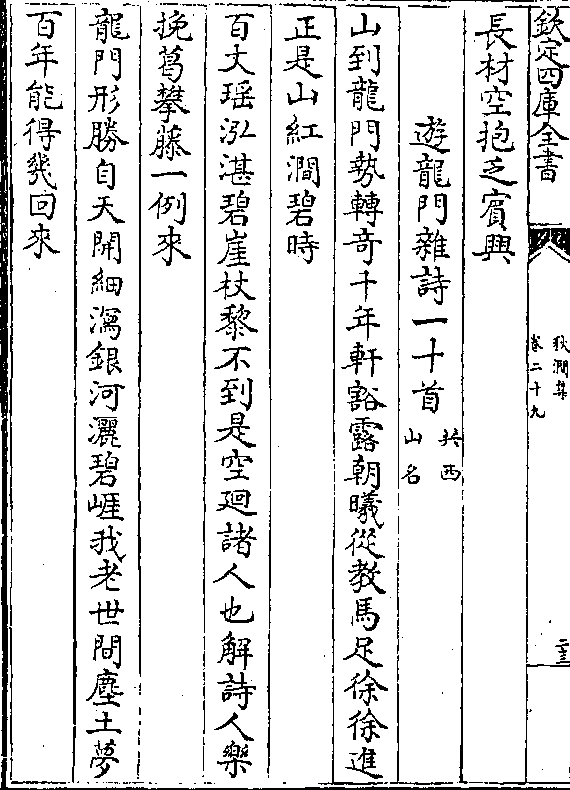 欽定四庫全書
秋澗集
卷二十九
二十三
長材空抱乏賓興
遊龍門雜詩一十首
共西
山名
山到龍門勢轉奇千年軒豁露朝曦從教馬足徐徐進
正是山紅澗碧時
百丈瑶泓湛碧崖杖藜不到是空廻諸人也解詩人樂
挽葛攀藤一例來
龍門形勝自天開細瀉銀河灑碧崕我老世間塵土夢
百年能得㡬回來